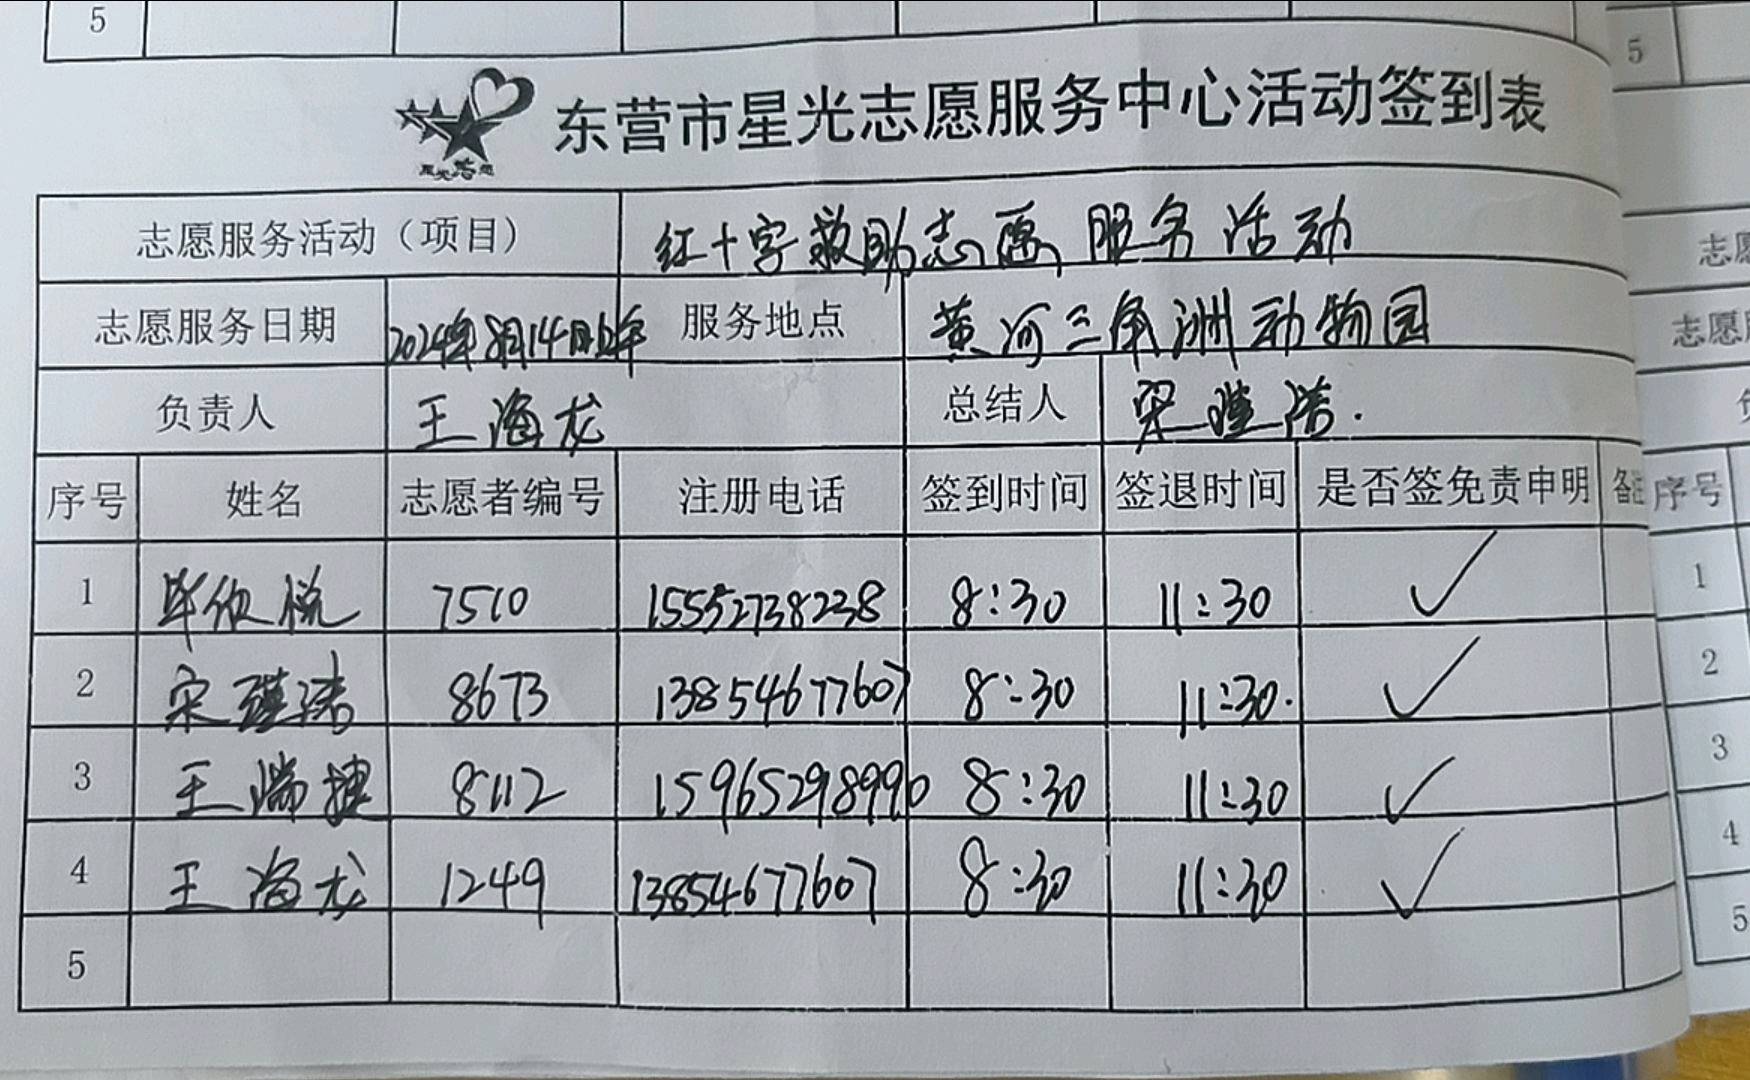 5
5
星光志愿
东营市星光志愿服务中心活动签到表
志愿服务活动（项目） 红十字救助志愿服务活动
志愿服务日期 2024年8月14日上午 服务地点 黄河三角洲动物园
负责人 王海龙 总结人 宋瑾浩.
序号 姓名 志愿者编号 注册电话 签到时间 签退时间 是否签免责申明 备注
1 毕欣悦 7510 15552738238 8:30 11:30 ✓
2 宋瑾浩 8673 13854677607 8:30 11:30. ✓
3 王瑞捷 8112 15965298990 8:30 11:30 ✓
4 王海龙 1249 13854677607 8:30 11:30 ✓
5
志愿
志愿服
负
序号
1
2
3
4
5